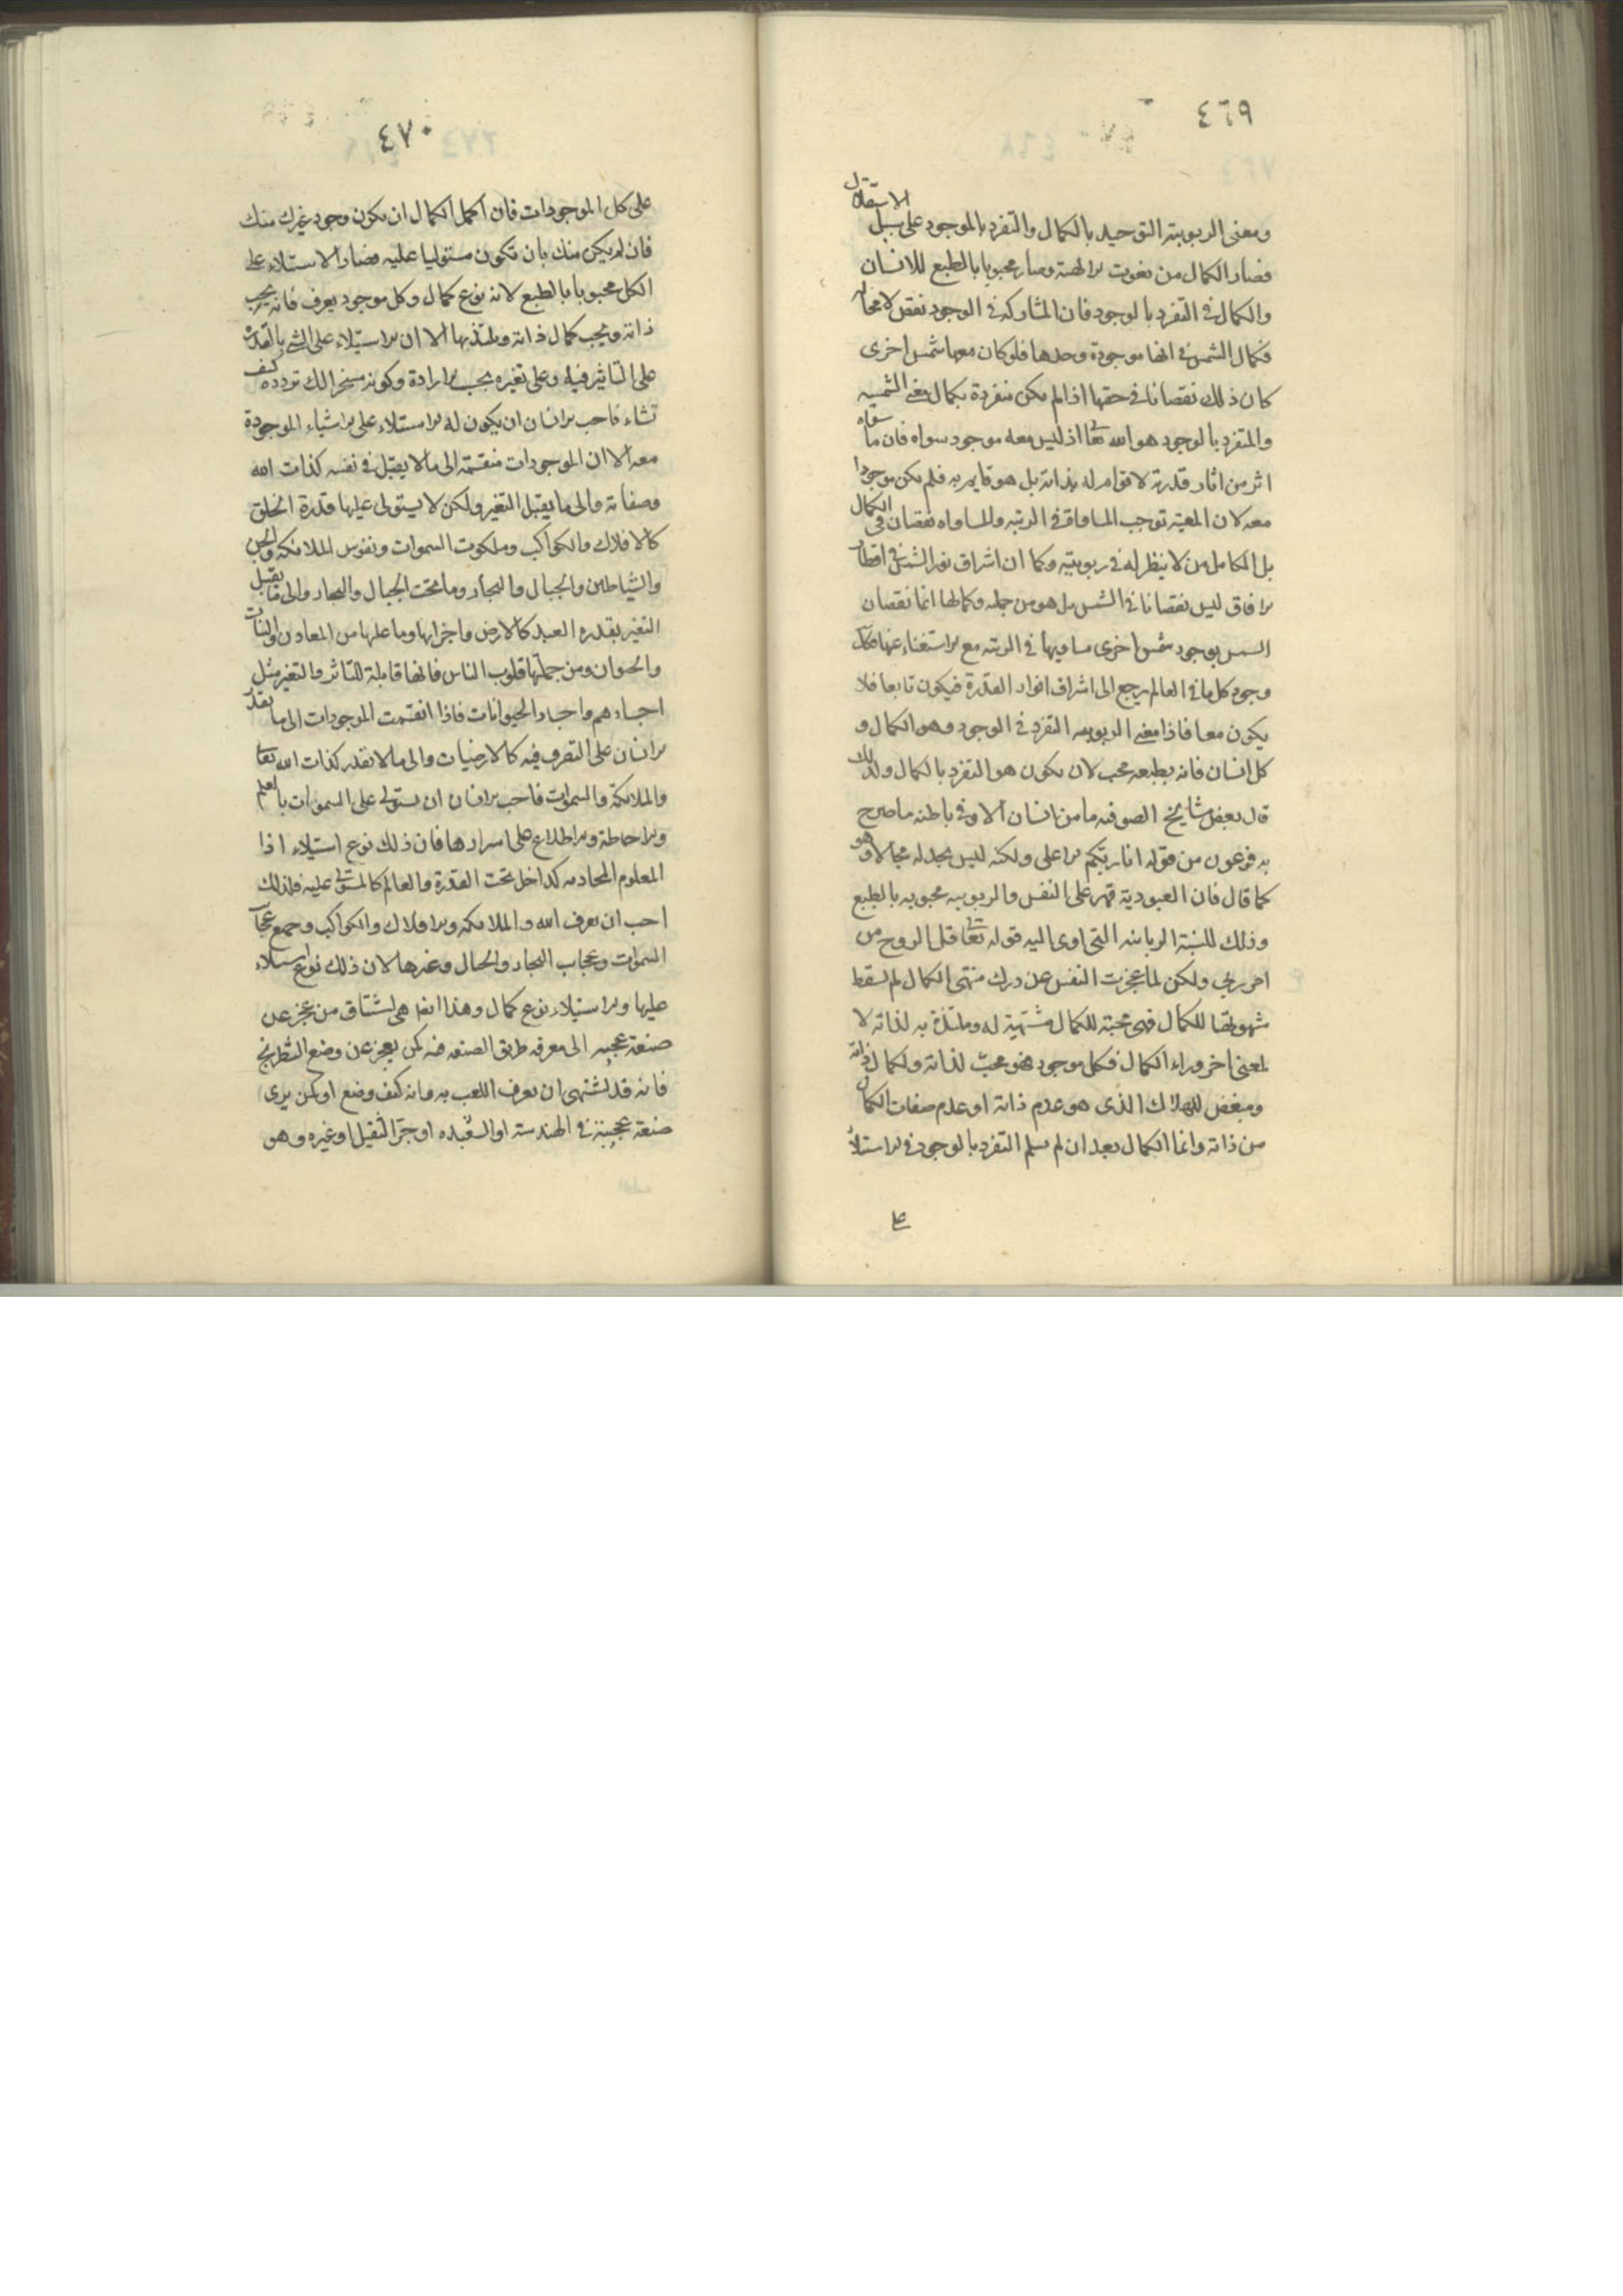 ٤٦٩
الاستقلال
ومعنى الربوبية التوحيد بالكمال والتفرد بالموجود على سبيل
فصار الكمال من نعوت الالهية وصار محبوبا بالطبع للانسان
والكمال في التفرد بالوجود فان المشاركة في الوجود نقص لا محاله
فكمال الشمس في انها موجودة وحدها فلو كان معها شمس اخرى
كان ذلك نقصانا في حقها اذ لم يكن منفردة بكمال معنى الشمسيه
والمتفرد بالوجود هو الله تعا اذ ليس معه موجود سواه فان ما سواه
اثر من اثار قدرته لا قوام له بذاته بل هو قايم به فلم يكن موجودا
معه لان المعيه توجب المساواة في الرتبه والمساواه نقصان في الكمال
بل الكامل من لا نظير له في ربوبيته وكما ان اشراق نور الشمس في اقطار
الافاق ليس نقصانا في الشمس بل هو من جمله وكمالها انما نقصان
الشمس بوجود شمس اخرى مساويها في الرتبه مع الاستغناء عنها فكل
وجود كل ما في العالم يرجع الى اشراق انوار القدرة فيكون تابعا فلا
يكون معا فاذا معنى الربوبيه التفرد في الوجود وهو الكمال و
كل انسان فانه بطبعه محب لان يكون هو المتفرد بالكمال ولذلك
قال بعض مشايخ الصوفيه ما من انسان الا وفي باطنه ما صرح
به فرعون من قوله انا ربكم الاعلى ولكنه ليس يجد له مجالا وهو
كما قال فان العبودية قهر على النفس والربوبيه محبوبه بالطبع
وذلك للنسبة الربانيه التى اوى اليه قوله تعا قل الروح من
امر ربي ولكن لما عجزت النفس عن درك منتهى الكمال لم تسقط
شهوتها للكمال فهى محبة للكمال مشتهية له وملتذة به لذاته لا
لمعنى اخر وراء الكمال فكل موجود فهو محب لذاته ولكمال ذاته
ومبغض للهلاك الذى هو عدم ذاته او عدم صفات الكمال
من ذاته وانما الكمال بعد ان لم يسلم التفرد بالوجود في الاستلاء
على
٤٧٠
على كل الموجودات فان اكمل الكمال ان يكون وجود غيرك منك
فان لم يكن منك بان تكون مستوليا عليه فصار الاستلاء على
الكل محبوبا بالطبع لانه نوع كمال وكل موجود يعرف فانه يحب
ذاته ويحب كمال ذاته ويلتذ بها الا ان الاستيلاء على الشي بالقدرة
على التاثير فيه وعلى تغيره بحسب الارادة وكونه مسخرا لك تردده كيف
تشاء فاحب الانسان ان يكون له الاستلاء على الاشياء الموجودة
معه الا ان الموجودات منقسمة الى ما لا يقبل في نفسه كذات الله
وصفاته والى ما يقبل التغير ولكن لا يستولى عليها قدرة الخلق
كالافلاك والكواكب وملكوت السموات ونفوس الملائكه والجن
والشياطين والجبال والبحار وما تحت الجبال والبحار والى ما يقبل
التغير بقدره العبد كالارض واجزائها وما عليها من المعادن والنبات
والحيوان ومن جملتها قلوب الناس فانها قابلة للتاثر والتغير مثل
اجسادهم واجساد الحيوانات فاذا انقسمت الموجودات الى ما يقدر
الانسان على التصرف فيه كالارضيات والى ما لا يقدر كذات الله تعا
والملائكة والسموات فاحب الانسان ان يستولى على السموات بالعلم
والاحاطة والاطلاع على اسرارها فان ذلك نوع استيلاء اذا
المعلوم المحاط به كداخل تحت القدرة والعالم كالمستولى عليه فلذلك
احب ان يعرف الله والملائكه والافلاك والكواكب وجميع عجائب
السموات وعجايب البحار والجبال وغيرها لان ذلك نوع استيلاء
عليها والاستيلاء نوع كمال وهذا يضاهى اشتياق من عجز عن
صنعة عجيبه الى معرفه طريق الصنعه فيه كمن يعجز عن وضع الشطرنج
فانه قد يشتهى ان يعرف اللعب به وانه كيف وضع او كمن يرى
صنعة عجيبة في الهندسة او الشعبده او جر الثقيل او غيره وهو